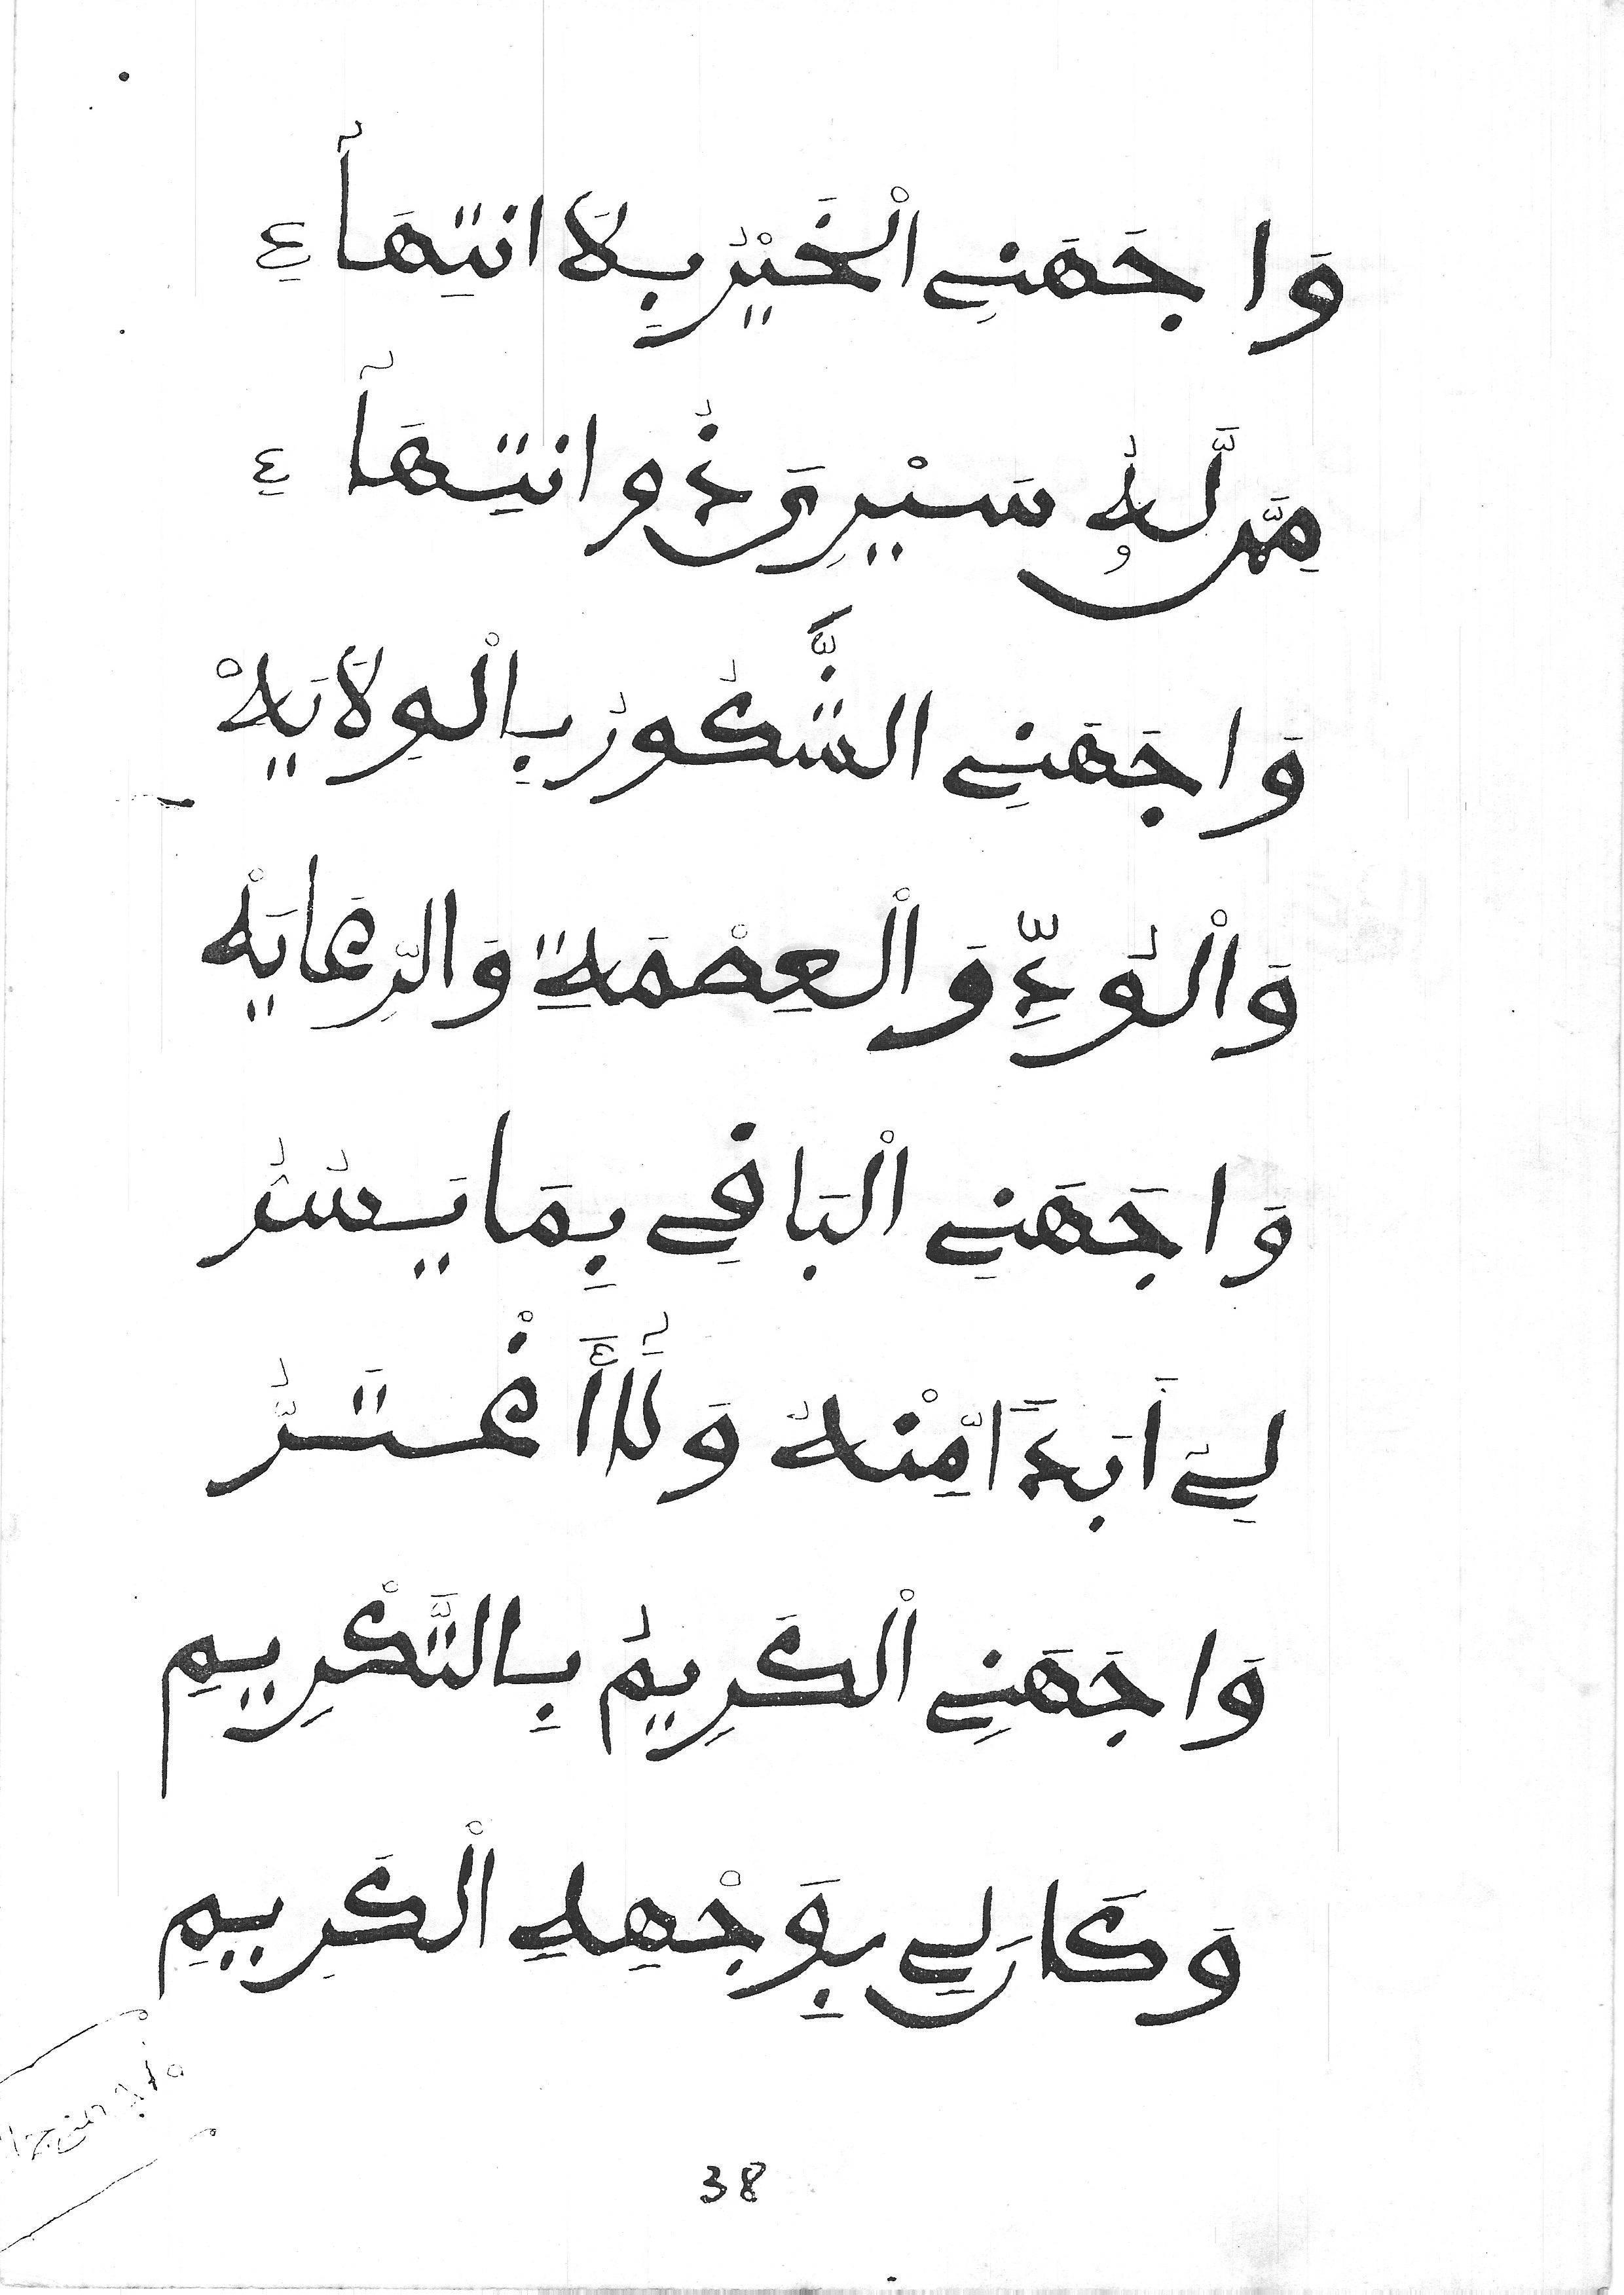 وَاجَهَنِي الْخَيْرُ بِلَا انتِهَاءِ
مِمَّن لَّهُ سَيْرِي وَذُو انتِهَاءِ
وَاجَهَنِي الشَّكُورُ بِالْوِلَايَهْ
وَالْوُدِّ وَالْعِصْمَةِ وَالرِّعَايَهْ
وَاجَهَنِي الْبَاقِي بِمَا يَسُرُّ
لِي أَبَدًا مِّنْهُ وَلَا أَغْتَرُّ
وَاجَهَنِي الْكَرِيمُ بِالتَّكْرِيمِ
وَكَانَ لِي بِوَجْهِهِ الْكَرِيمِ
38